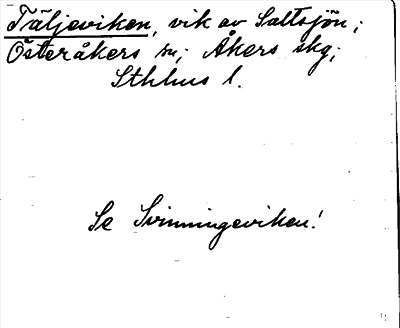 Täljeviken, vik av Saltsjön;
Österåkers sn; Åkers skg;
Sthlms l.
Se Svinningeviken!